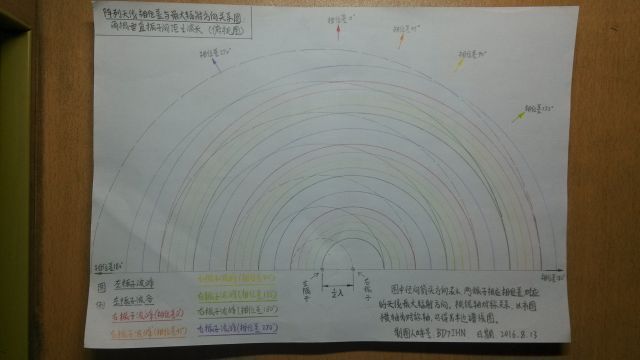 阵列天线相位差与最大辐射方向关系图
两根垂直振子间距½波长 (俯视图)
相位差0°
相位差45°
相位差90°
相位差135°
相位差270°
相位差180°
相位差180°
图
例
左振子波峰
左振子波谷
右振子波峰(相位差0°)
右振子波峰(相位差45°)
右振子波峰(相位差90°)
右振子波峰(相位差135°)
右振子波峰(相位差180°)
右振子波峰(相位差270°)
左振子
½λ
右振子
图中径向箭头方向表示两振子相应相位差对应
的天线最大辐射方向,
横轴为对称轴,
制图人呼号: BD7IHN 日期: 2016.8.13